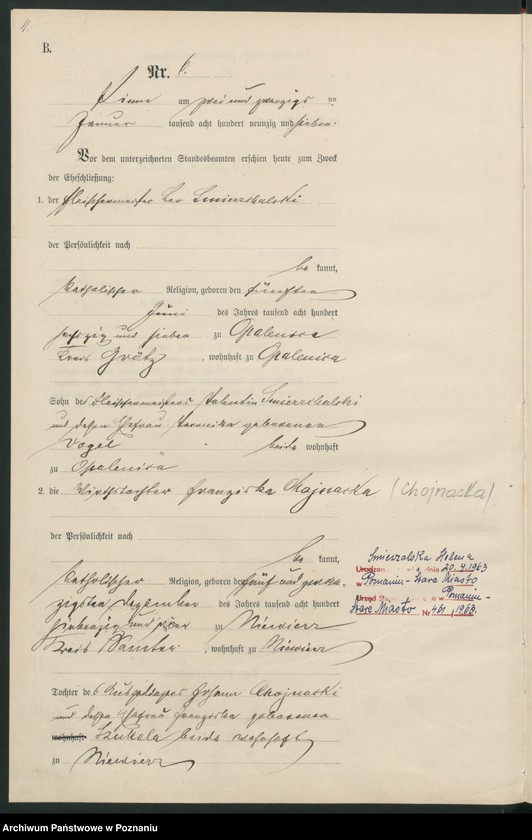 11
B.
Nr. 6.
Pinne am zwei und zwanzigsten
Januar tausend acht hundert neunzig und sieben:
Vor dem unterzeichneten Standesbeamten erschien heute zum Zweck
der Eheschließung:
1. der Fleischermeister Leo Smierzchalski
der Persönlichkeit nach
be kannt,
katholischer Religion, geboren den fünften
Juni des Jahres tausend acht hundert
sechszig und sieben zu Opalenica
Kreis Grätz, wohnhaft zu Opalenica
Sohn des Fleischermeisters Valentin Smierzchalski
und dessen Ehefrau Veronika geborenen
Vogel beide wohnhaft
zu Opalenica
2. die Wirthstochter Franziska Chojnacka (Chojnacka)
der Persönlichkeit nach
be kannt,
katholischer Religion, geboren den fünf und zwan-
zigsten Dezember des Jahres tausend acht hundert
siebenzig und vier zu Niewierz
Kreis Samter, wohnhaft zu Niewierz
Tochter des Johann Chojnacki
und dessen Ehefrau Franziska geborenen
wohnhaft Szukala beide wohnhaft
zu Niewierz
Smierzalska Helena
dnia 20.4.1963
w Poznaniu-Stare Miasto
Urząd Poznaniu-
Stare Miasto Nr 461/1963.
Archiwum Państwowe w Poznaniu